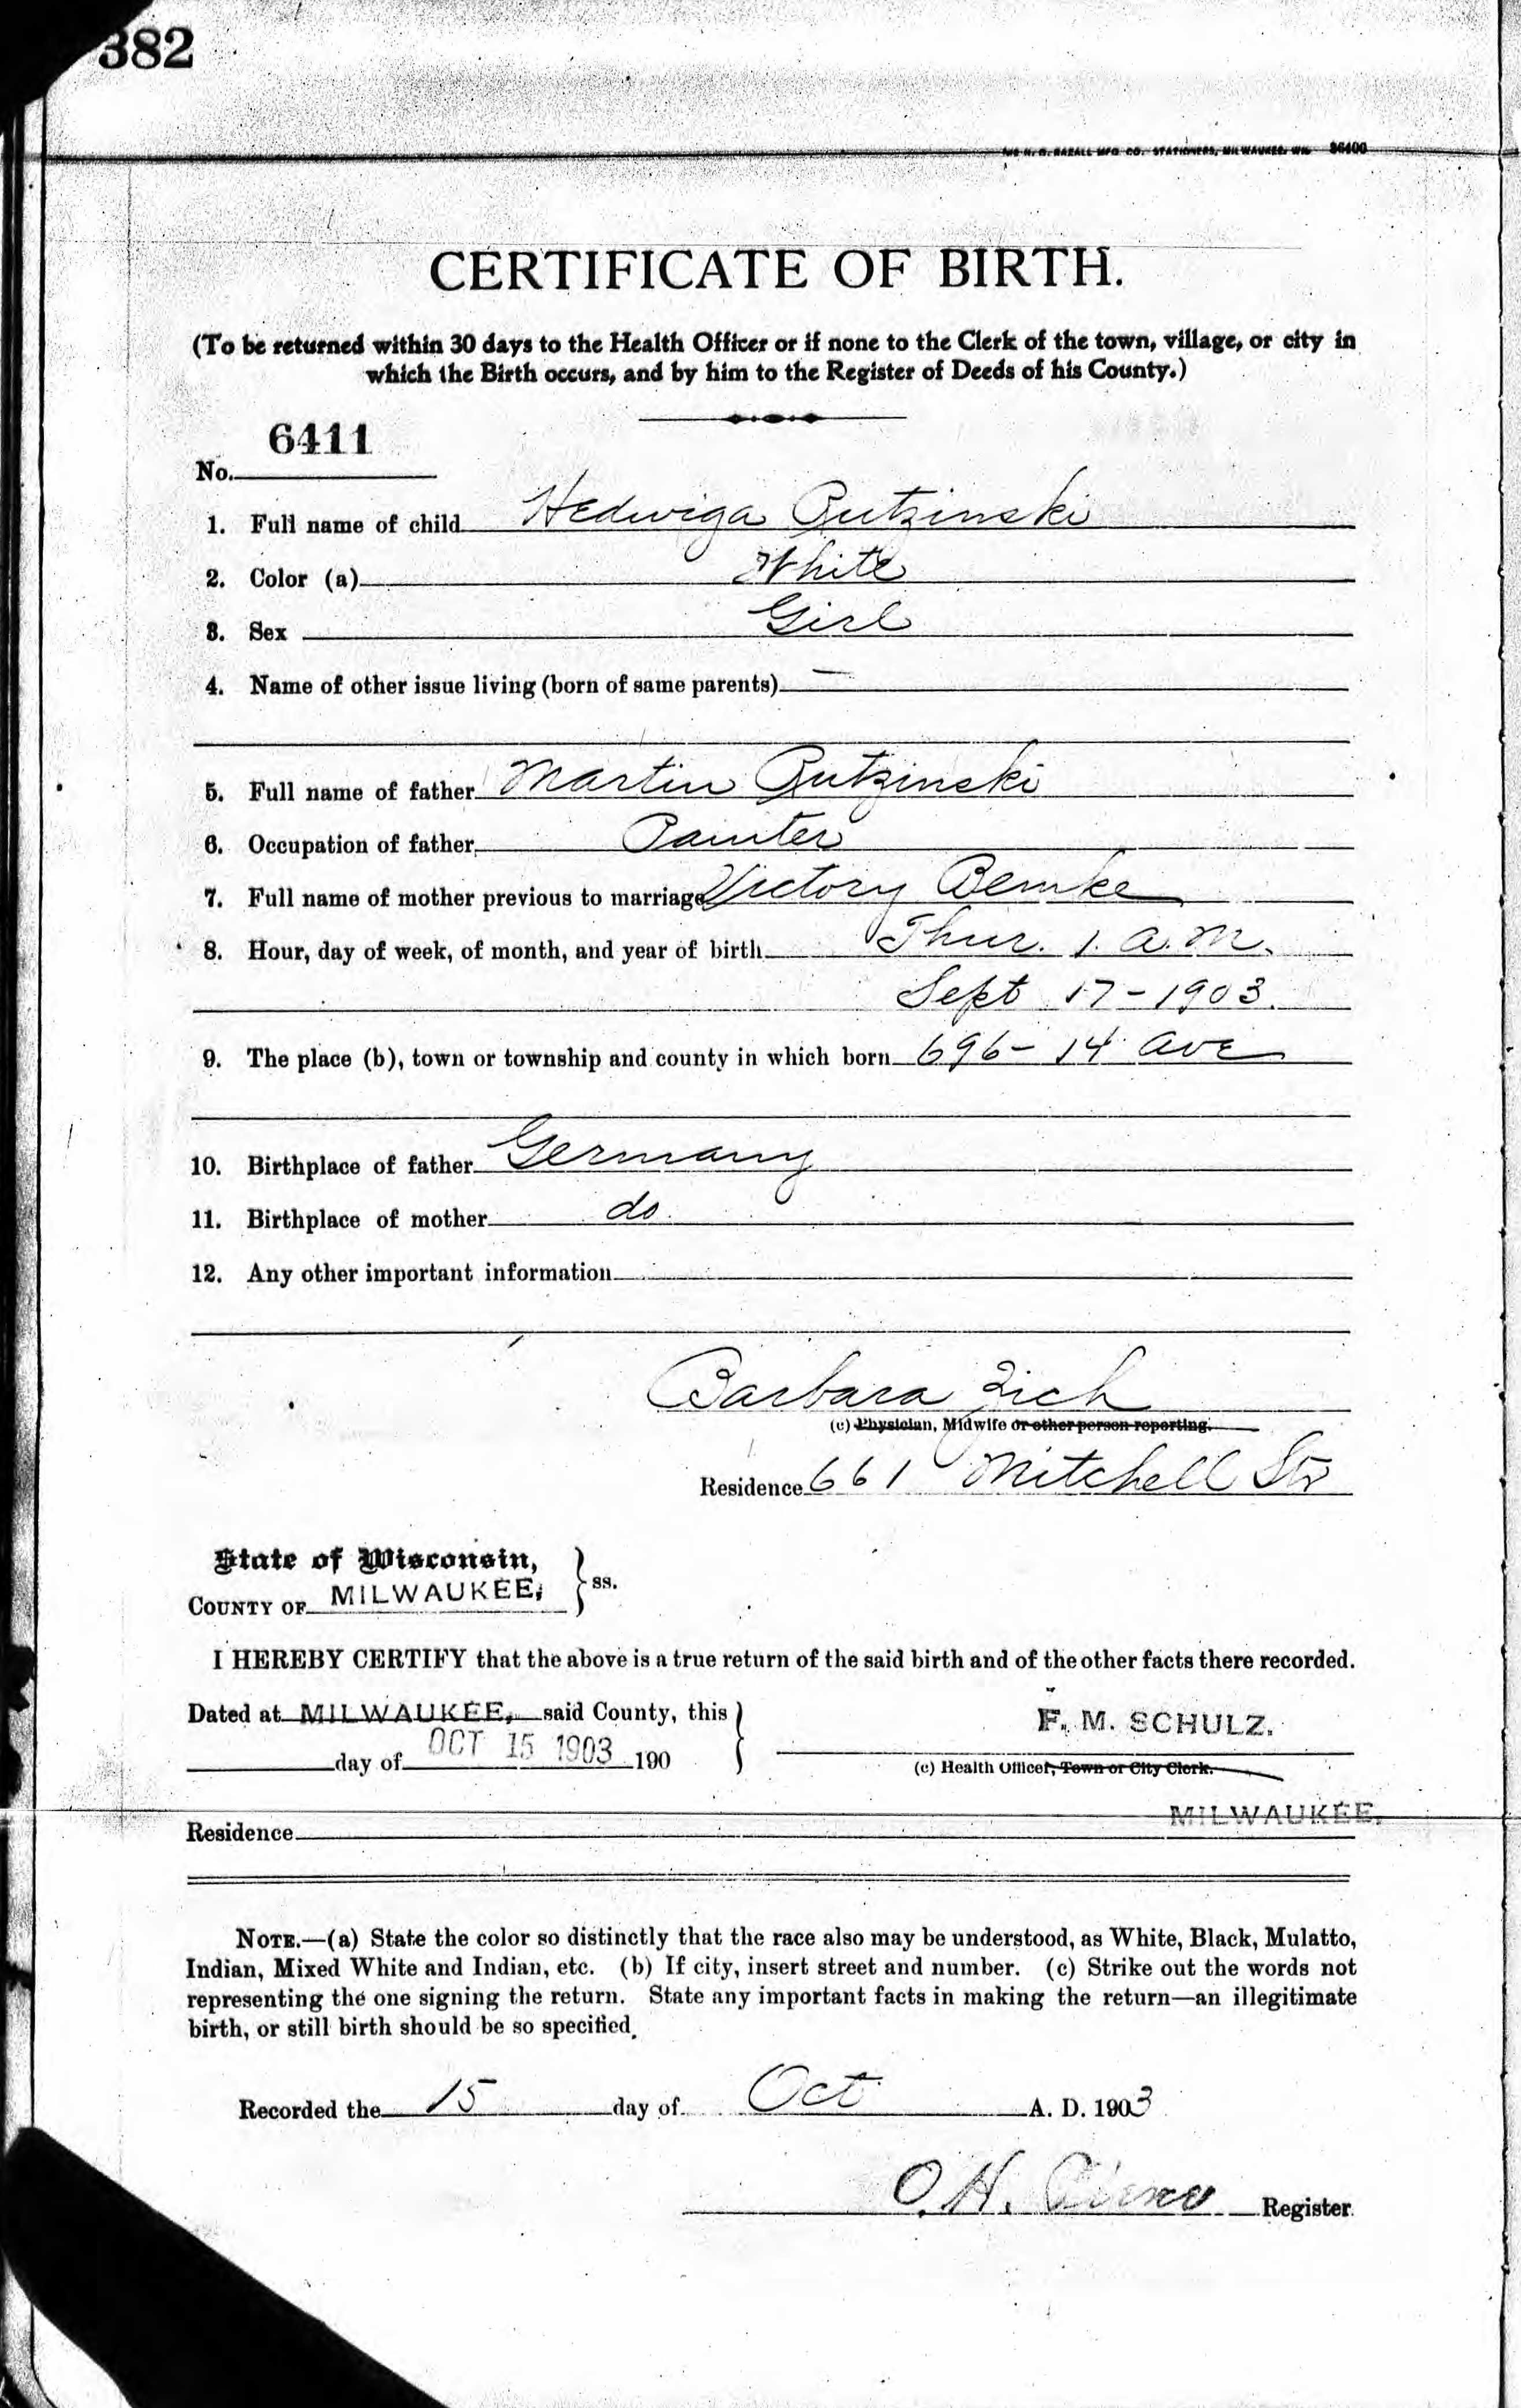 382
CO. STATIONERS, MILWAUKEE, WIS. 36400
CERTIFICATE OF BIRTH.
(To be returned within 30 days to the Health Officer or if none to the Clerk of the town, village, or city in
which the Birth occurs, and by him to the Register of Deeds of his County.)
No. 6411
1. Full name of child Hedwiga Rutzinski
2. Color (a) White
3. Sex Girl
4. Name of other issue living (born of same parents) —
5. Full name of father Martin Rutzinski
6. Occupation of father Painter
7. Full name of mother previous to marriage Victory Bemke
8. Hour, day of week, of month, and year of birth Thur. 1. a. M.
Sept 17-1903.
9. The place (b), town or township and county in which born 696- 14 Ave
10. Birthplace of father Germany
11. Birthplace of mother do
12. Any other important information
Barbara Zich
(c) Physician, Midwife or other person reporting.
Residence 661 Mitchell Str
State of Wisconsin,
COUNTY OF MILWAUKEE, } ss.
I HEREBY CERTIFY that the above is a true return of the said birth and of the other facts there recorded.
Dated at MILWAUKEE, said County, this
day of OCT 15 1903 190
F. M. SCHULZ.
(c) Health Officer, Town or City Clerk.
MILWAUKEE.
Residence
NOTE.—(a) State the color so distinctly that the race also may be understood, as White, Black, Mulatto,
Indian, Mixed White and Indian, etc. (b) If city, insert street and number. (c) Strike out the words not
representing the one signing the return. State any important facts in making the return—an illegitimate
birth, or still birth should be so specified.
Recorded the 15 day of Oct A. D. 1903
O. H. Register.